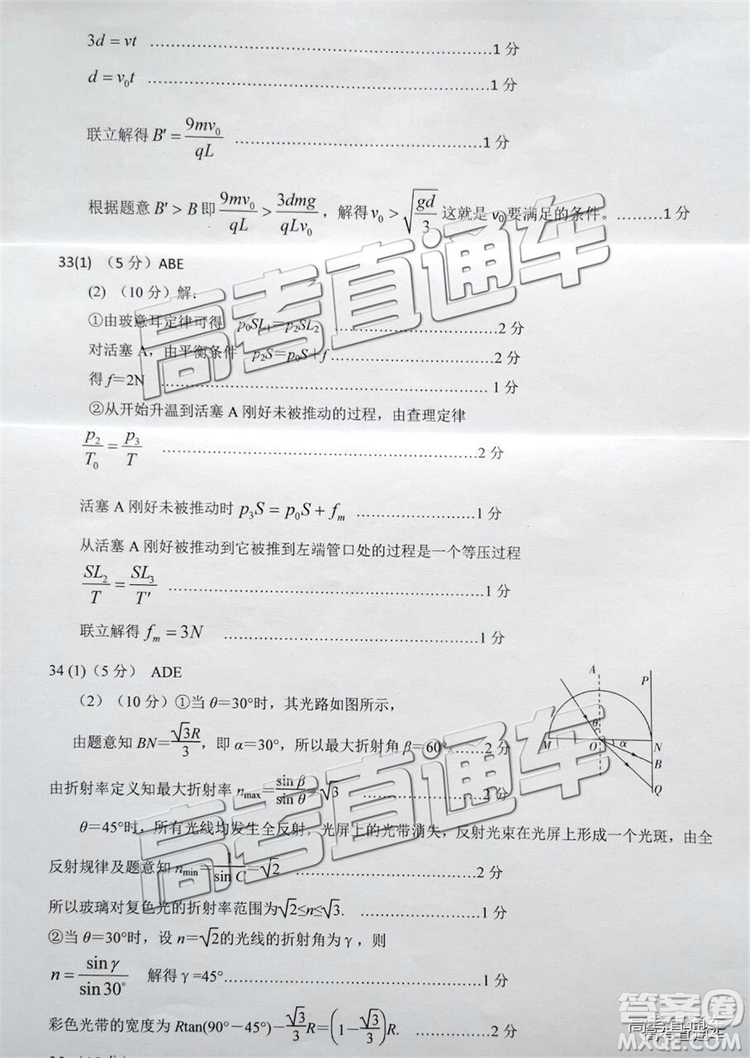 3d = vt ……………………………………1 分
d = v₀t ……………………………………1 分
联立解得 B′ = 9mv₀/qL ……………………………1 分
根据题意 B′ > B 即 9mv₀/qL > 3dmg/qLv₀ ，解得 v₀ > √(gd/3) 这就是 v₀要满足的条件。………1 分
33(1) （5 分）ABE
(2) （10 分）解：
①由玻意耳定律可得 p₀SL₁=p₂SL₂ ……………………2 分
对活塞 A，由平衡条件 p₂S=p₀S+f……………………2 分
得 f＝2N ……………………………………………1 分
②从开始升温到活塞 A 刚好未被推动的过程，由查理定律
p₂/T₀ = p₃/T ……………………………………2 分
活塞 A 刚好未被推动时 p₃S = p₀S + fₘ ………………1 分
从活塞 A 刚好未被推动到它被推到左端管口处的过程是一个等压过程
SL₂/T = SL₃/T′ ……………………………………1 分
联立解得 fₘ = 3N ……………………………1 分
34 (1)（5 分） ADE
（2）（10 分）①当 θ＝30°时，其光路如图所示，
由题意知 BN=√3R/3，即 α＝30°，所以最大折射角 β＝60°………2 分
由折射率定义知最大折射率 nmax=sin β/sin θ=√3 ……………………2 分
θ＝45°时，所有光线均发生全反射，光屏上的光带消失，反射光束在光屏上形成一个光斑，由全
反射规律及题意知 nmin=1/sin C=√2 ……………………………2 分
所以玻璃对复色光的折射率范围为√2≤n≤√3. ………………1 分
②当 θ＝30°时，设 n＝√2的光线的折射角为 γ，则
n = sin γ/sin30° 解得 γ =45°……………………………1 分
彩色光带的宽度为 Rtan(90°－45°)－√3/3R=(1－√3/3)R. ……………2 分
A
P
θ
M
O
α
N
B
Q
高考直通车
高考直通车
答案圈
高考直通车
MXQE.COM